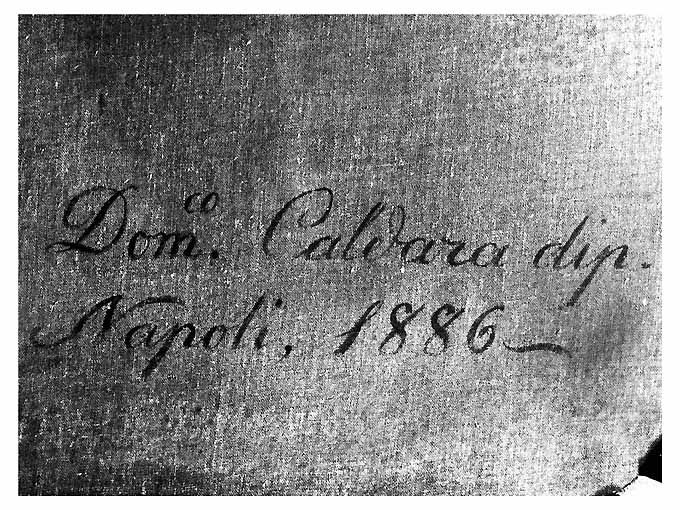 Dom.co Caldara dip.
Napoli, 1886